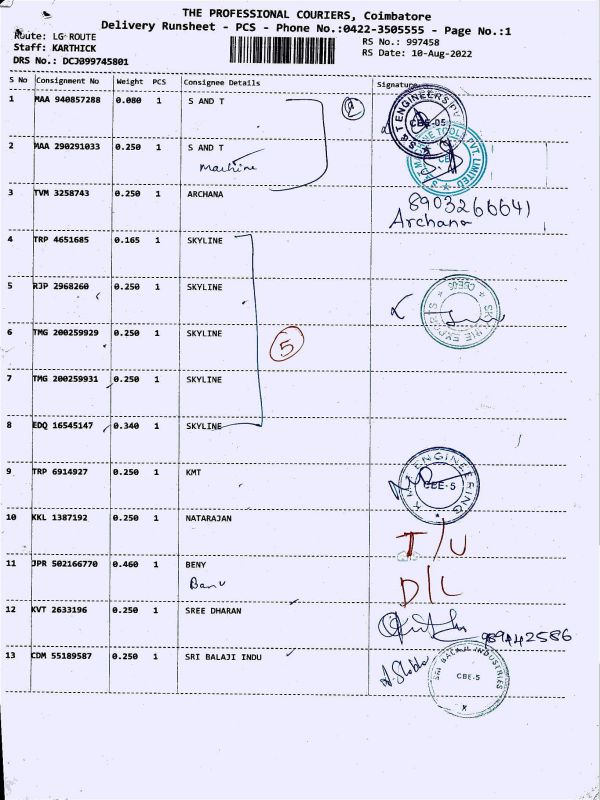 THE PROFESSIONAL COURIERS, Coimbatore
Delivery Runsheet - PCS - Phone No.:0422-3505555 - Page No.:1
Route: LG ROUTE
RS No.: 997458
Staff: KARTHICK
RS Date: 10-Aug-2022
DRS No.: DCJ099745801
S No Consignment No Weight PCS Consignee Details Signature
1 MAA 940857288 0.080 1 S AND T
2
S & T ENGINEERS PV
CBE-05
2 MAA 290291033 0.250 1 S AND T
Machine
PVT. LIMITED
3 TVM 3258743 0.250 1 ARCHANA
8903266641
Archana
4 TRP 4651685 0.165 1 SKYLINE
5 RJP 2968260 0.250 1 SKYLINE
6 TMG 200259929 0.250 1 SKYLINE
5
7 TMG 200259931 0.250 1 SKYLINE
8 EDQ 16545147 0.340 1 SKYLINE
9 TRP 6914927 0.250 1 KMT
ENGINEERING
CBE-5
10 KKL 1387192 0.250 1 NATARAJAN
T/U
11 JPR 502166770 0.460 1 BENY
Banu
D/L
12 KVT 2633196 0.250 1 SREE DHARAN
13 CDM 55189587 0.250 1 SRI BALAJI INDU
SRI BALAJI INDUSTRIES
CBE-5